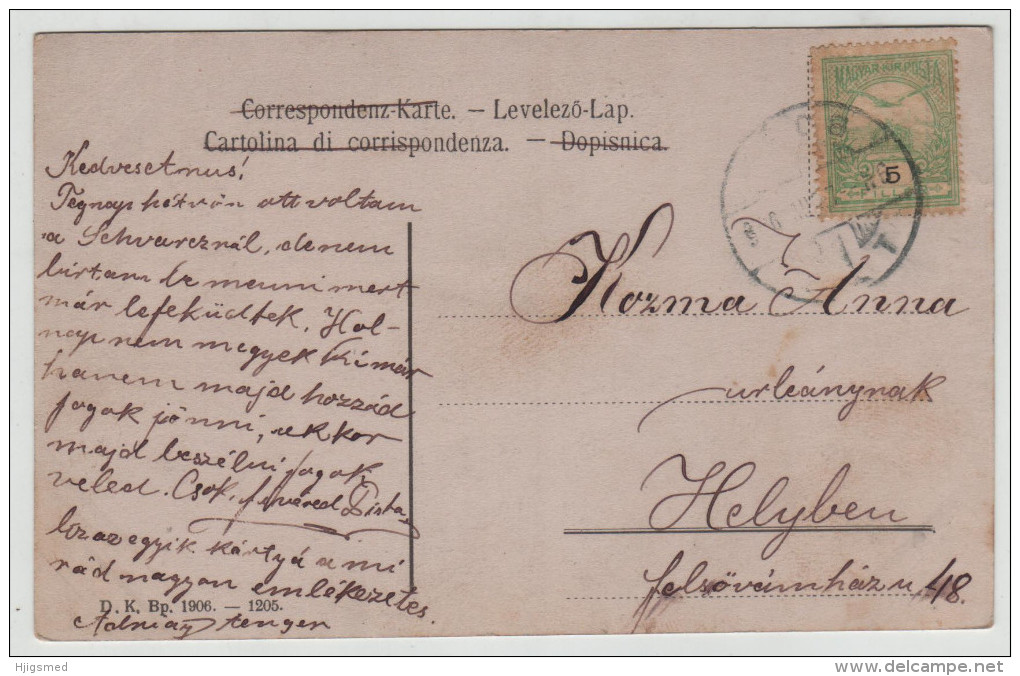 Correspondenz-Karte. — Levelező-Lap.
Cartolina di corrispondenza. — Dopisnica.
MAGYAR·KIR·POSTA
5
Kedves
Tegnap ott voltam
a Schvarcznál, de nem
birtam be menni mert
már lefeküdtek. Hol-
nap nem megyek ki már
hanem majd hozzád
fogok jönni, ekkor
majd beszélni fogok
veled. Csok. Pista
Ez az egyik kártya a mi
rád nagyon emlékezetes
D. K. Bp. 1906. — 1205.
tenger
Kozma Anna
urleánynak
Helyben
felsővámház u 48.
Hjigsmed
www.delcampe.net